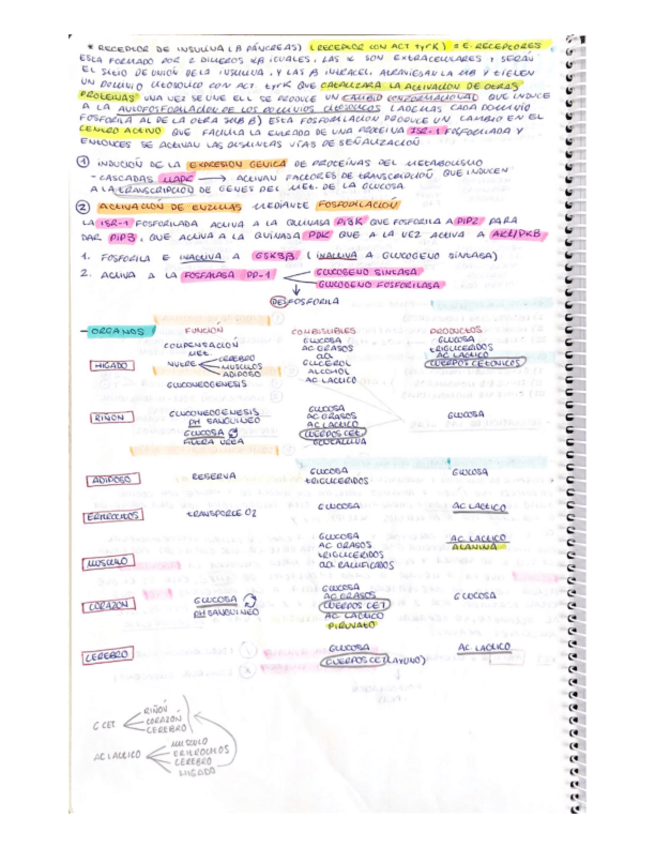 * RECEPTOR DE INSULINA (β PÁNCREAS) (RECEPTOR CON ACT TyrK) RECEPTORES
ESTA FORMADO POR 2 DIMEROS αβ IGUALES, LAS α SON EXTRACELULARES Y SERÁN
EL SITIO DE UNIÓN DE LA INSULINA, Y LAS β INTRACEL. ATRAVIESAN LA MB Y TIENEN
UN DOMINIO CITOSOLICO CON ACT TyrK QUE CATALIZARA LA ACTIVACION DE OTRAS
PROTEINAS UNA VEZ SE UNE SE PRODUCE UN CAMBIO CONFORMACIONAL QUE INDUCE
A LA AUTOFOSFORILACION DE LOS DOMINIOS (ADEMAS CADA DOMINIO
FOSFORILA AL DE LA OTRA SUB β) ESTA FOSFORILACION PRODUCE UN CAMBIO EN EL
CENTRO ACTIVO QUE FACILITA LA ENTRADA DE UNA PROTEINA ISR-1 FOSFORILADA Y
ENTONCES SE ACTIVAN LAS DISTINTAS VÍAS DE SEÑALIZACIÓN
① INDUCIÓN DE LA EXPRESION GENICA DE PROTEÍNAS DEL METABOLISMO
- CASCADAS MAPK → ACTIVAN FACTORES DE TRANSCRIPCIÓN QUE INDUCEN
A LA TRANSCRIPCIÓN DE GENES DEL MET. DE LA GLUCOSA
② ACTIVACIÓN DE ENZIMAS MEDIANTE FOSFORILACIÓN
LA ISR-1 FOSFORILADA ACTIVA A LA QUINASA PI3K QUE FOSFORILA A PIP2 PARA
DAR PIP3, QUE ACTIVA A LA QUINASA PDK QUE A LA VEZ ACTIVA A AKT/PKB
1. FOSFORILA E INACTIVA A GSK3β (INACTIVA A GLUCOGENO SINTASA)
2. ACTIVA A LA FOSFATASA PP-1
GLUCOGENO SINTASA
GLUCOGENO FOSFORILASA
DESFOSFORILA
- ORGANOS FUNCIÓN COMBUSTIBLES PRODUCTOS
HIGADO
COMPENSACIÓN
MET.
NUTRE
CEREBRO
MUSCULOS
ADIPOSO
GLUCONEOGENESIS
GLUCOSA
AC GRASOS
aa
GLICEROL
ALCOHOL
AC LACTICO
GLUCOSA
TRIGLICERIDOS
AC LACTICO
CUERPOS CETONICOS
RIÑON
GLUCONEOGENESIS
PH SANGUÍNEO
GLUCOSA
FILTRA UREA
GLUCOSA
AC GRASOS
AC LACTICO
CUERPOS CET
GLUTAMINA
GLUCOSA
ADIPOSO
RESERVA
GLUCOSA
TRIGLICERIDOS
GLUCOSA
ERITROCITOS
TRANSPORTE O2
GLUCOSA
AC LACTICO
MUSCULO
GLUCOSA
AC GRASOS
TRIGLICERIDOS
aa RAMIFICADOS
AC LACTICO
ALANINA
CORAZÓN
GLUCOSA
PH SANGUINEO
GLUCOSA
AC GRASOS
CUERPOS CET
AC LACTICO
PIRUVATO
GLUCOSA
CEREBRO
GLUCOSA
CUERPOS CET (AYUNO)
AC. LACTICO
C CET
RIÑÓN
CORAZÓN
CEREBRO
AC LACTICO
MUSCULO
ERITROCITOS
CEREBRO
HIGADO